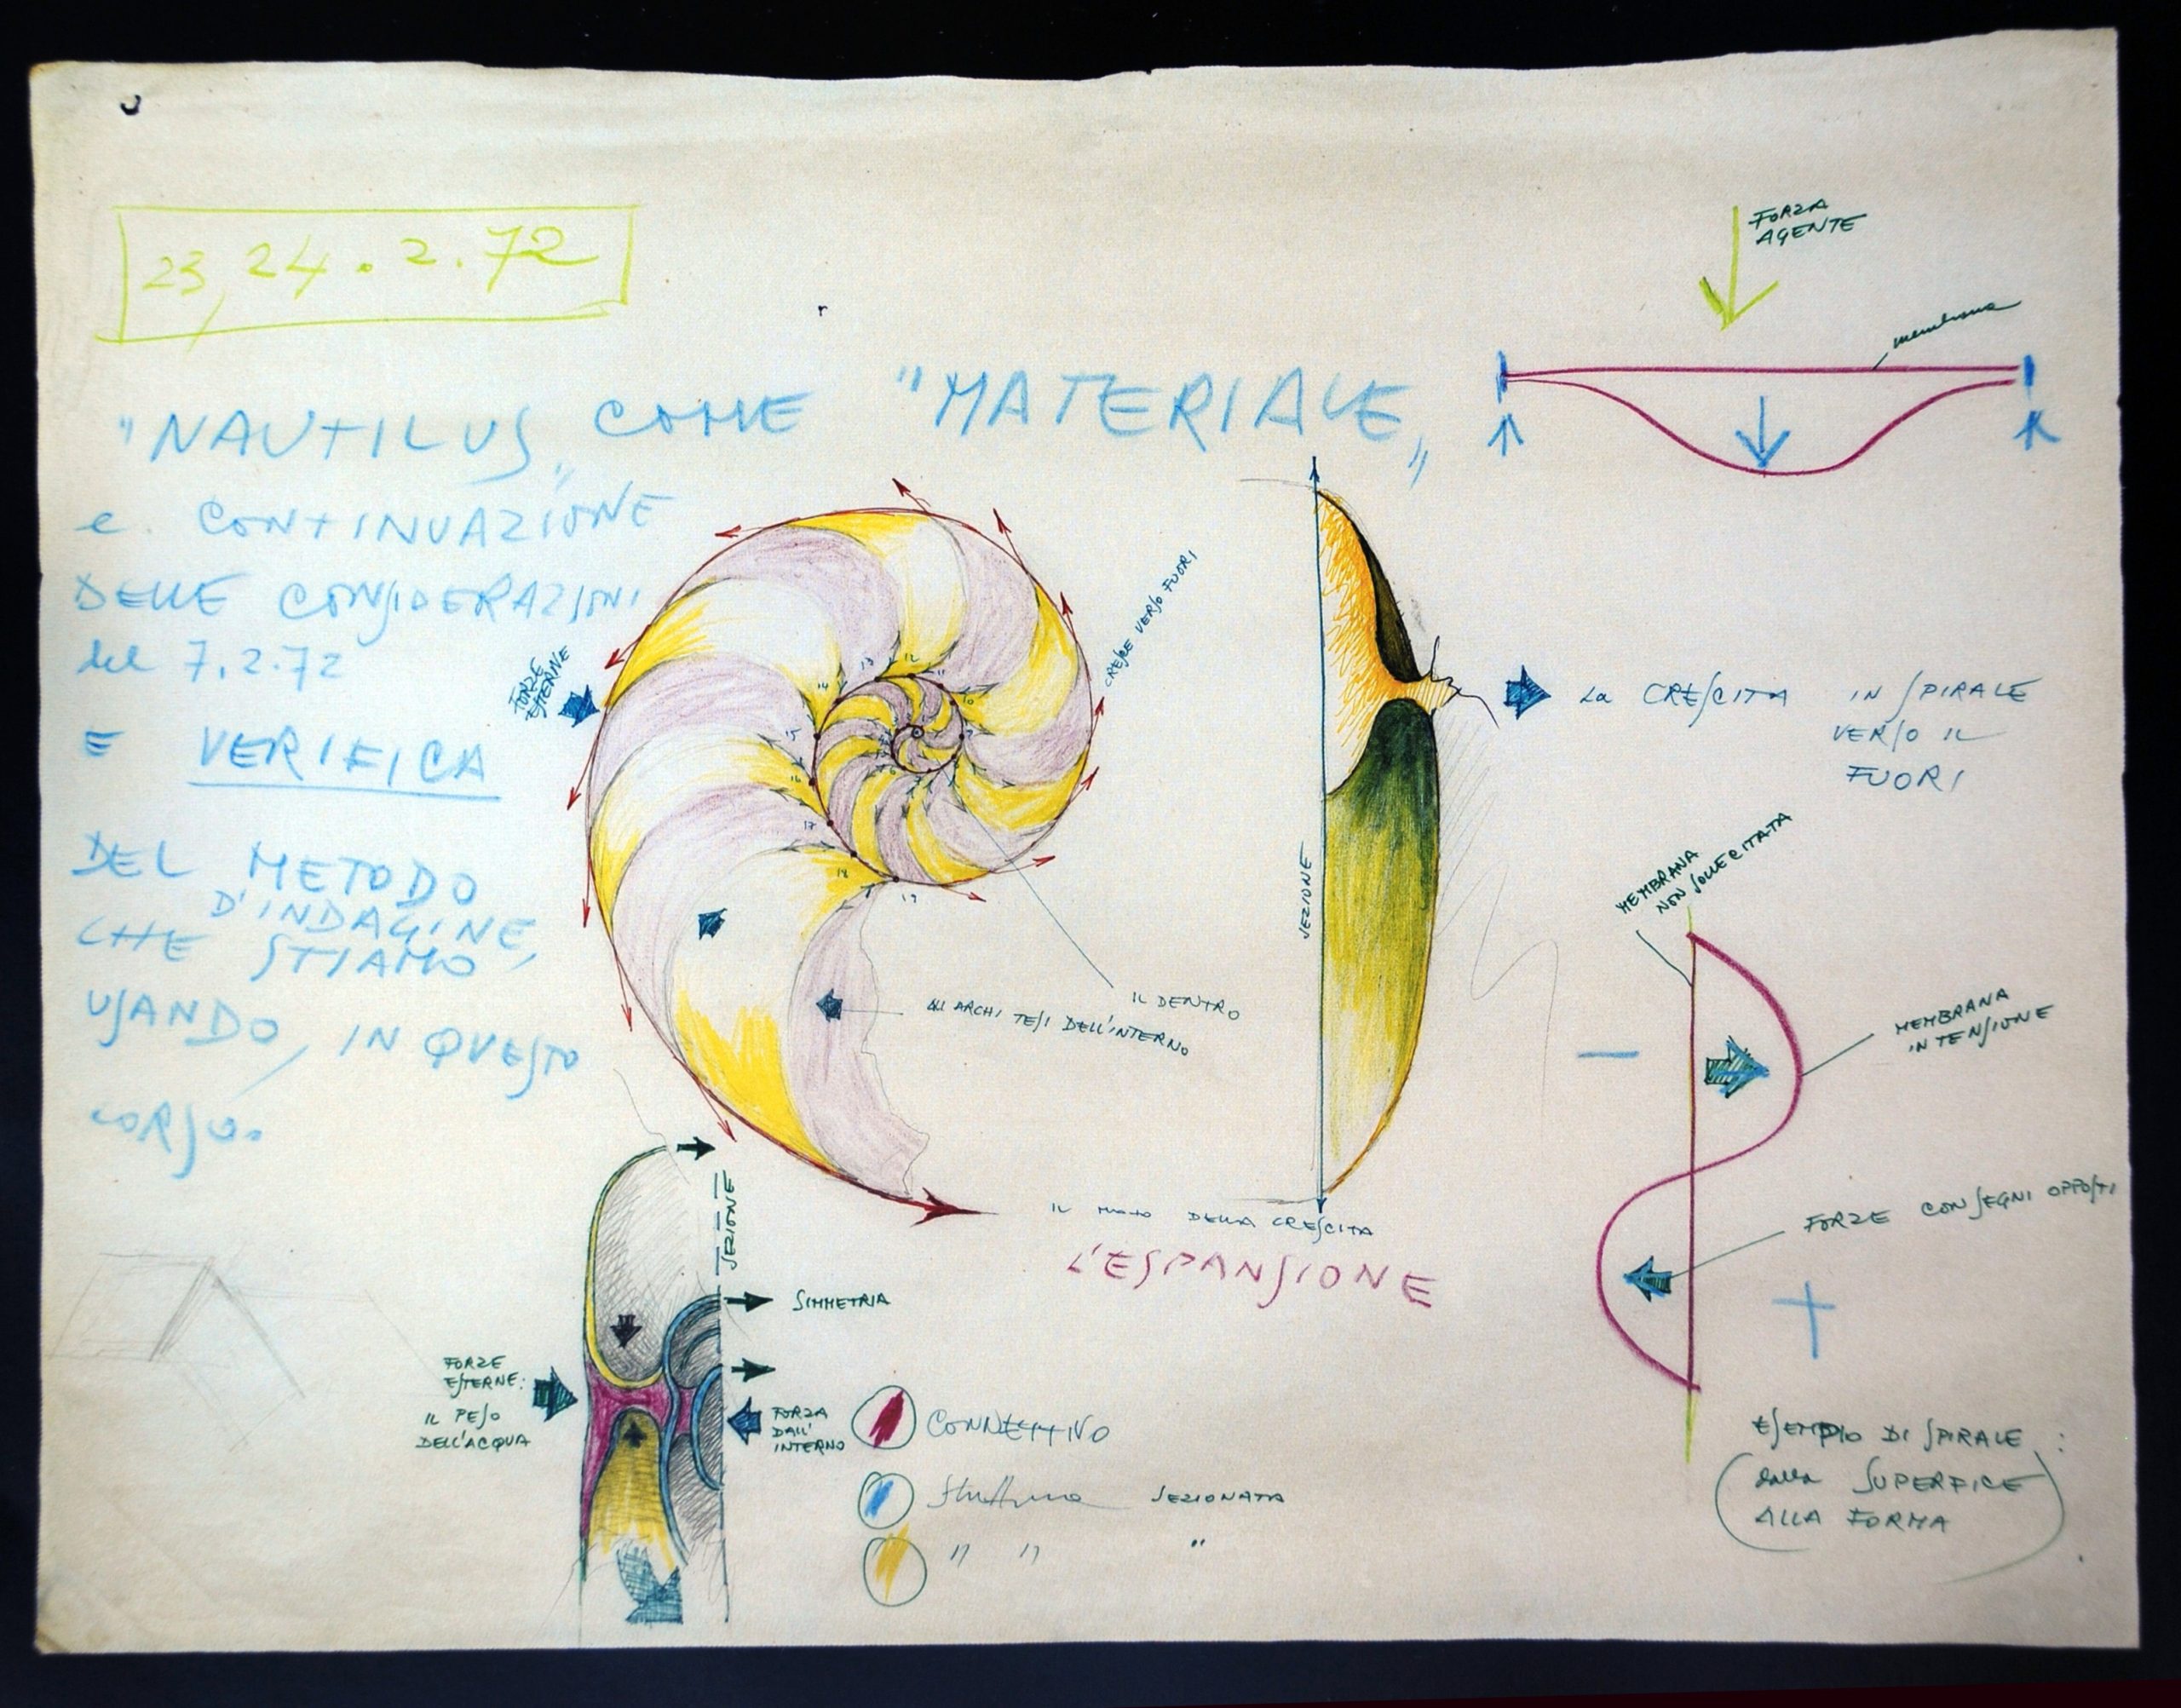 23, 24 . 2 . 72
"NAUTILUS„ COME "MATERIALE„
e CONTINUAZIONE
DELLE CONSIDERAZIONI
del 7.2.72
E VERIFICA
DEL METODO
D'INDAGINE,
CHE STIAMO
USANDO, IN QUESTO
CORSO.
FORZA
AGENTE
membrana
FORZE
ESTERNE
CRESCE VERSO FUORI
11
12
13
14
15
16
17
18
19
IL DENTRO
GLI ARCHI TESI DELL'INTERNO
SEZIONE
La CRESCITA IN SPIRALE
VERSO IL
FUORI
IL MOTO DELLA CRESCITA
L'ESPANSIONE
MEMBRANA
NON SOLLECITATA
MEMBRANA
IN TENSIONE
—
FORZE CON SEGNI OPPOSTI
+
ESEMPIO DI SPIRALE :
(dalla SUPERFICE
ALLA FORMA)
SEZIONE
SIMMETRIA
FORZE
ESTERNE:
IL PESO
DELL'ACQUA
FORZA
DALL'
INTERNO
CONNETTIVO
Struttura SEZIONATA
" " "